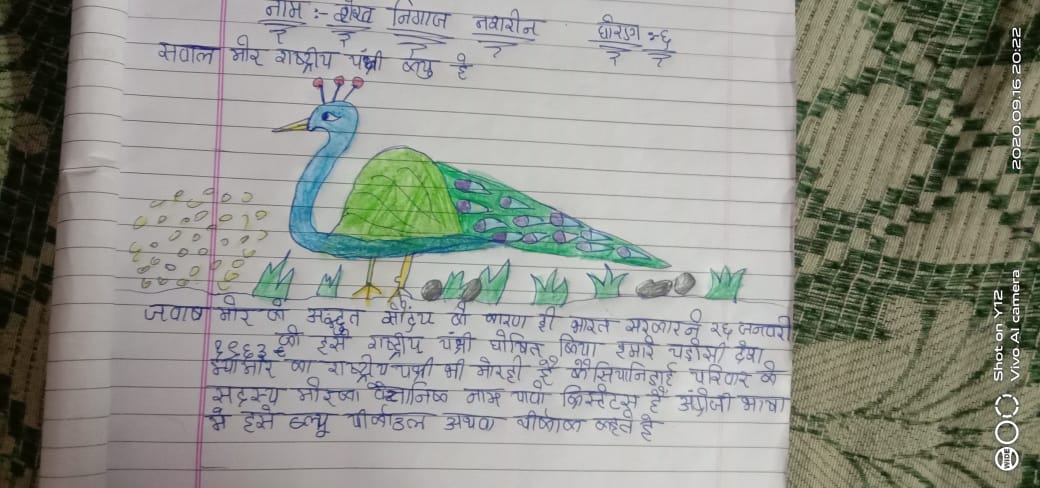 नाम :- शेख निगाज नशरीन
सवाल मोर राष्ट्रीय पंक्षी क्यु है
जवाब मोर के अद्भुत सौंदर्य के कारण ही भारत सरकारने २६ जनवरी
१९६३ को इसे राष्ट्रीय पंक्षी घोषित किया हमारे पड़ोसी देश
म्यांमार का राष्ट्रीय पक्षी भी मोरही है परिवार के
सदस्य मोरका वैज्ञानिक नाम पावो क्रिस्टेटस है अंग्रेजी भाषा
में इसे ब्ल्यू पीफॉउल अथवा पीकॉक कहते है
Shot on Y12
Vivo AI camera
2020.09.16 20:22